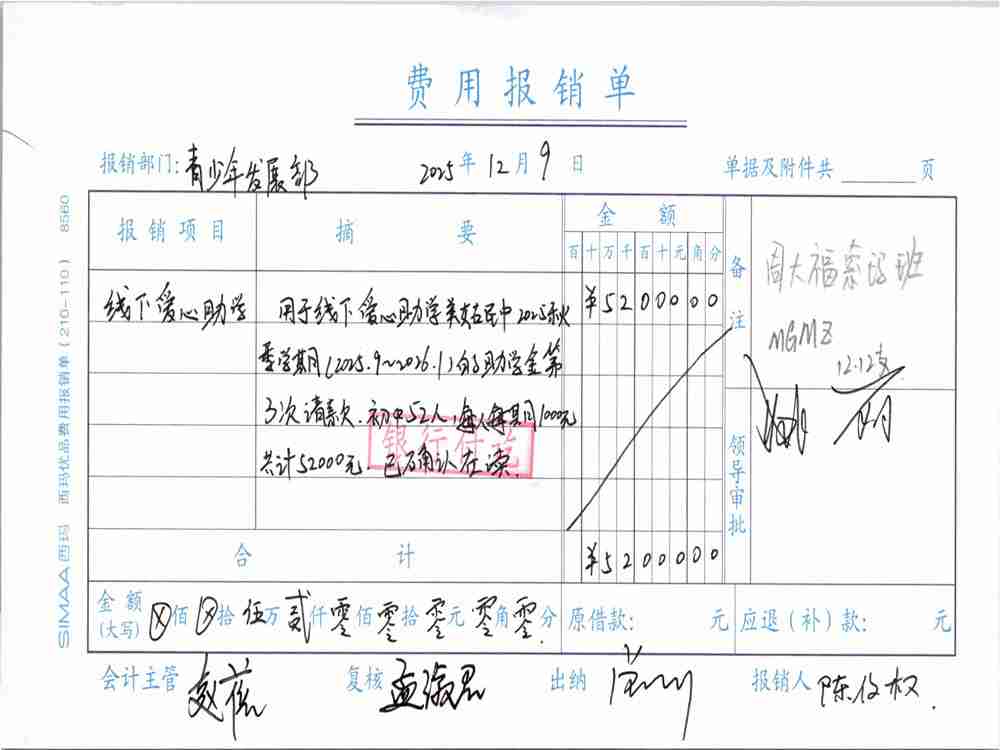 费用报销单
报销部门: 青少年发展部 2025年12月9日 单据及附件共 页
报销项目 摘要 金额
百十万千百十元角分
备注
线下爱心助学 用于线下爱心助学 2025秋
¥5200000
季学期(2025.9~2026.1)的助学金第
3次请款.初中52人,每人每期1000元
共计52000元.已确认在读.
银行付讫
周大福 班
MGMZ
12.12支
领导审批
合计 ¥5200000
金额(大写) ⊗佰⊗拾伍万贰仟零佰零拾零元零角零分 原借款: 元 应退(补)款: 元
会计主管 复核 孟 出纳 报销人 陈
SIMAA西玛 西玛优品费用报销单(210-110) 8560